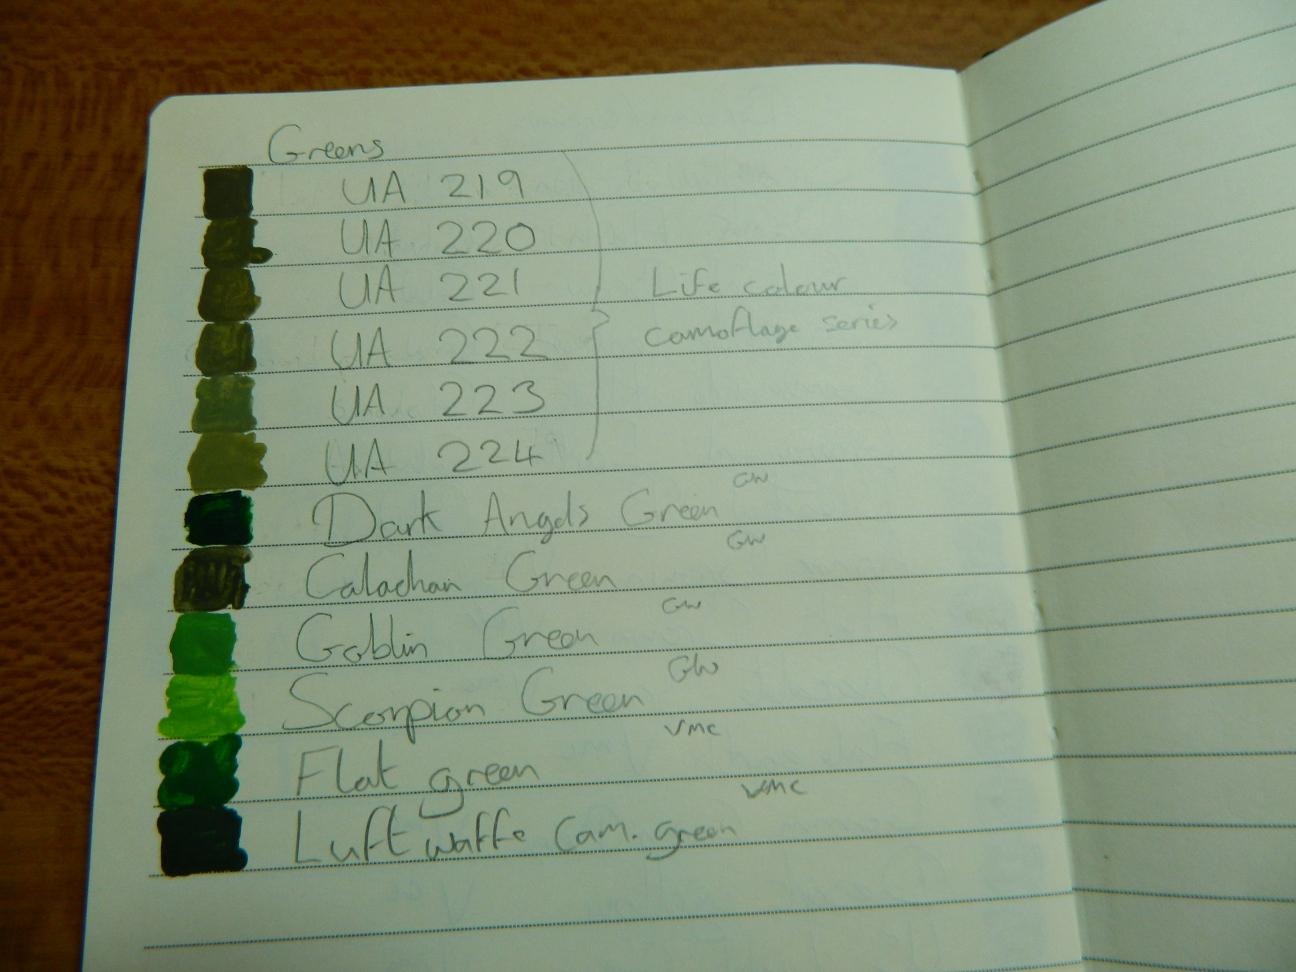 Greens
UA 219
UA 220
UA 221
Life colour
camoflage series
UA 222
UA 223
UA 224
Dark Angels Green GW
Catachan Green GW
Goblin Green GW
Scorpion Green GW
Flat green VMC
Luftwaffe Cam. green VMC